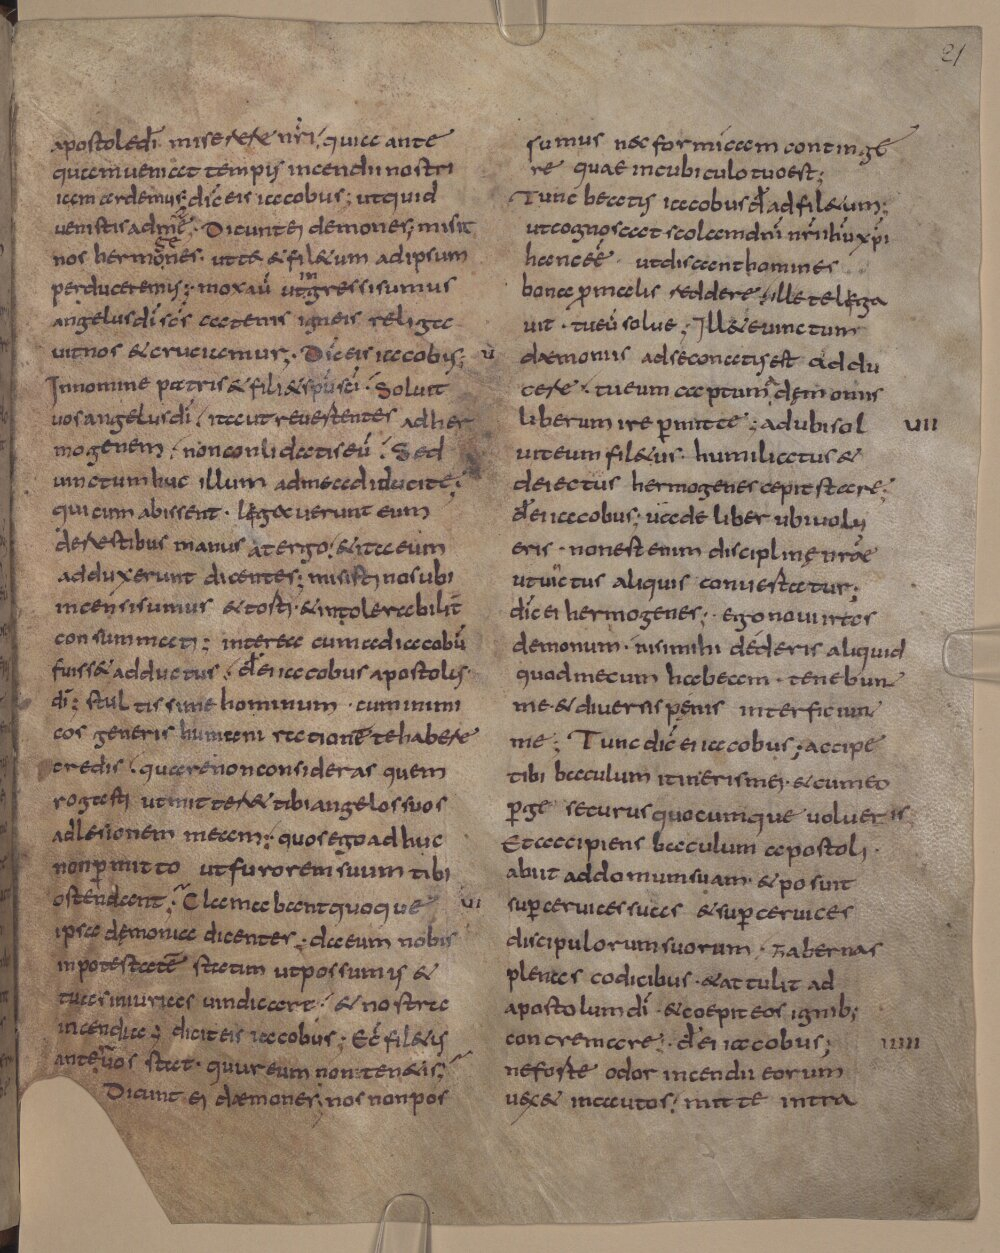 21
apostole dī miserere nr̄i, quia ante
quam veniat tempus incendii nostri
iam ardemus; dic̄ eis iacobus; utquid
venistis ad me; Dicunt ei demones; misit
nos hermogenes ut te & fil&um ad ipsum
perduceremus; mox aū ut ingressi sumus
angelus dī sc̄s catenis igneis religa
vit nos & cruciamur; Dic̄ eis iacobus;
v
In nomine patris & fili & spūs sc̄i. Solvit
vos angelus dī ita ut revertentes ad her
mogenem non conlidatis eū. Sed
vinctum huc illum ad me adducite;
qui cum abissent. legaverunt eum
de restibus manus a tergo; & ita eum
adduxerunt dicentes; misisti nos ubi
incensi sumus & tosti & intolerabilit̄
consummati; interea cum ad iacobū
fuiss& adductus. dꝉ ei iacobus apostolus
dī; stultissime hominum. cum inimi
cos generis humani rationē te habere
credis. quare non consideras quem
rogasti ut mitter&&tibi angelos suos
ad lesionem meam; quos ego adhuc
non ꝑmitto ut furorem suum tibi
ostendant; Clamabant quoque
vi
ipsa demonia dicentes; da eum nobis
in potestatē statim ut possumus &
tuas iniurias vindicare. & nostra
incendia; dicit eis iacobus; Ec̄ fil&us
ante vos stat. quur eum non ten&is;
Dicunt ei dæmones; nos non pos
sumus nec formicam continge
re quae in cubiculo tuo est;
Tunc beatus iacobus dꝉ ad fil&um;
ut cognoscat scolam dnī nr̄i ihū xp̄i
hanc eē. ut discant homines
bona ꝓ malis reddere. ille te lega
vit. tu eū solve; Ille te vinctum
dæmoniis ad se conatus est addu
cere. tu eum captum a demoniis
liberum ire ꝑmitte; ad ubi sol
vii
vit eum fil&us. humiliatus &
deiectus hermogenes cepit stare;
dꝉ ei iacobus; vade liber ubi volu
eris. non est enim disciplinę nr̄ae
ut vinctus aliquis convertatur;
dic̄ ei hermogenes; ego novi iras
demonum. nisi mihi dederis aliquid
quod mecum habeam. tenebunt
me & diversis pęnis interficiunt
me; Tunc dic̄ ei iacobus; accipe
tibi baculum itineris mei. & cum eo
ꝑge securus quocumque volueris
Et accipiens baculum apostoli.
abiit ad domum suam. & posuit
suꝑ cervices suas & suꝑ cervices
discipulorum suorum. zabernas
plenas codicibus. & attulit ad
apostolum dī. & coepit eos ignib;
concremare. dꝉ ei iacobus;
viiii
ne forte odor incendii eorum
vex& incautos. mitte intra